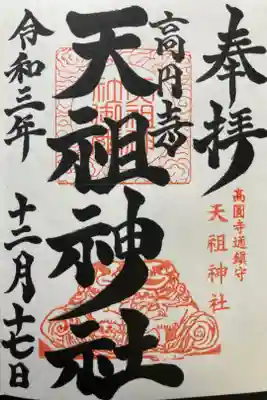 奉拝
高円寺
天祖神社
令和三年
十二月十七日
高圓寺通鎮守
天祖神社